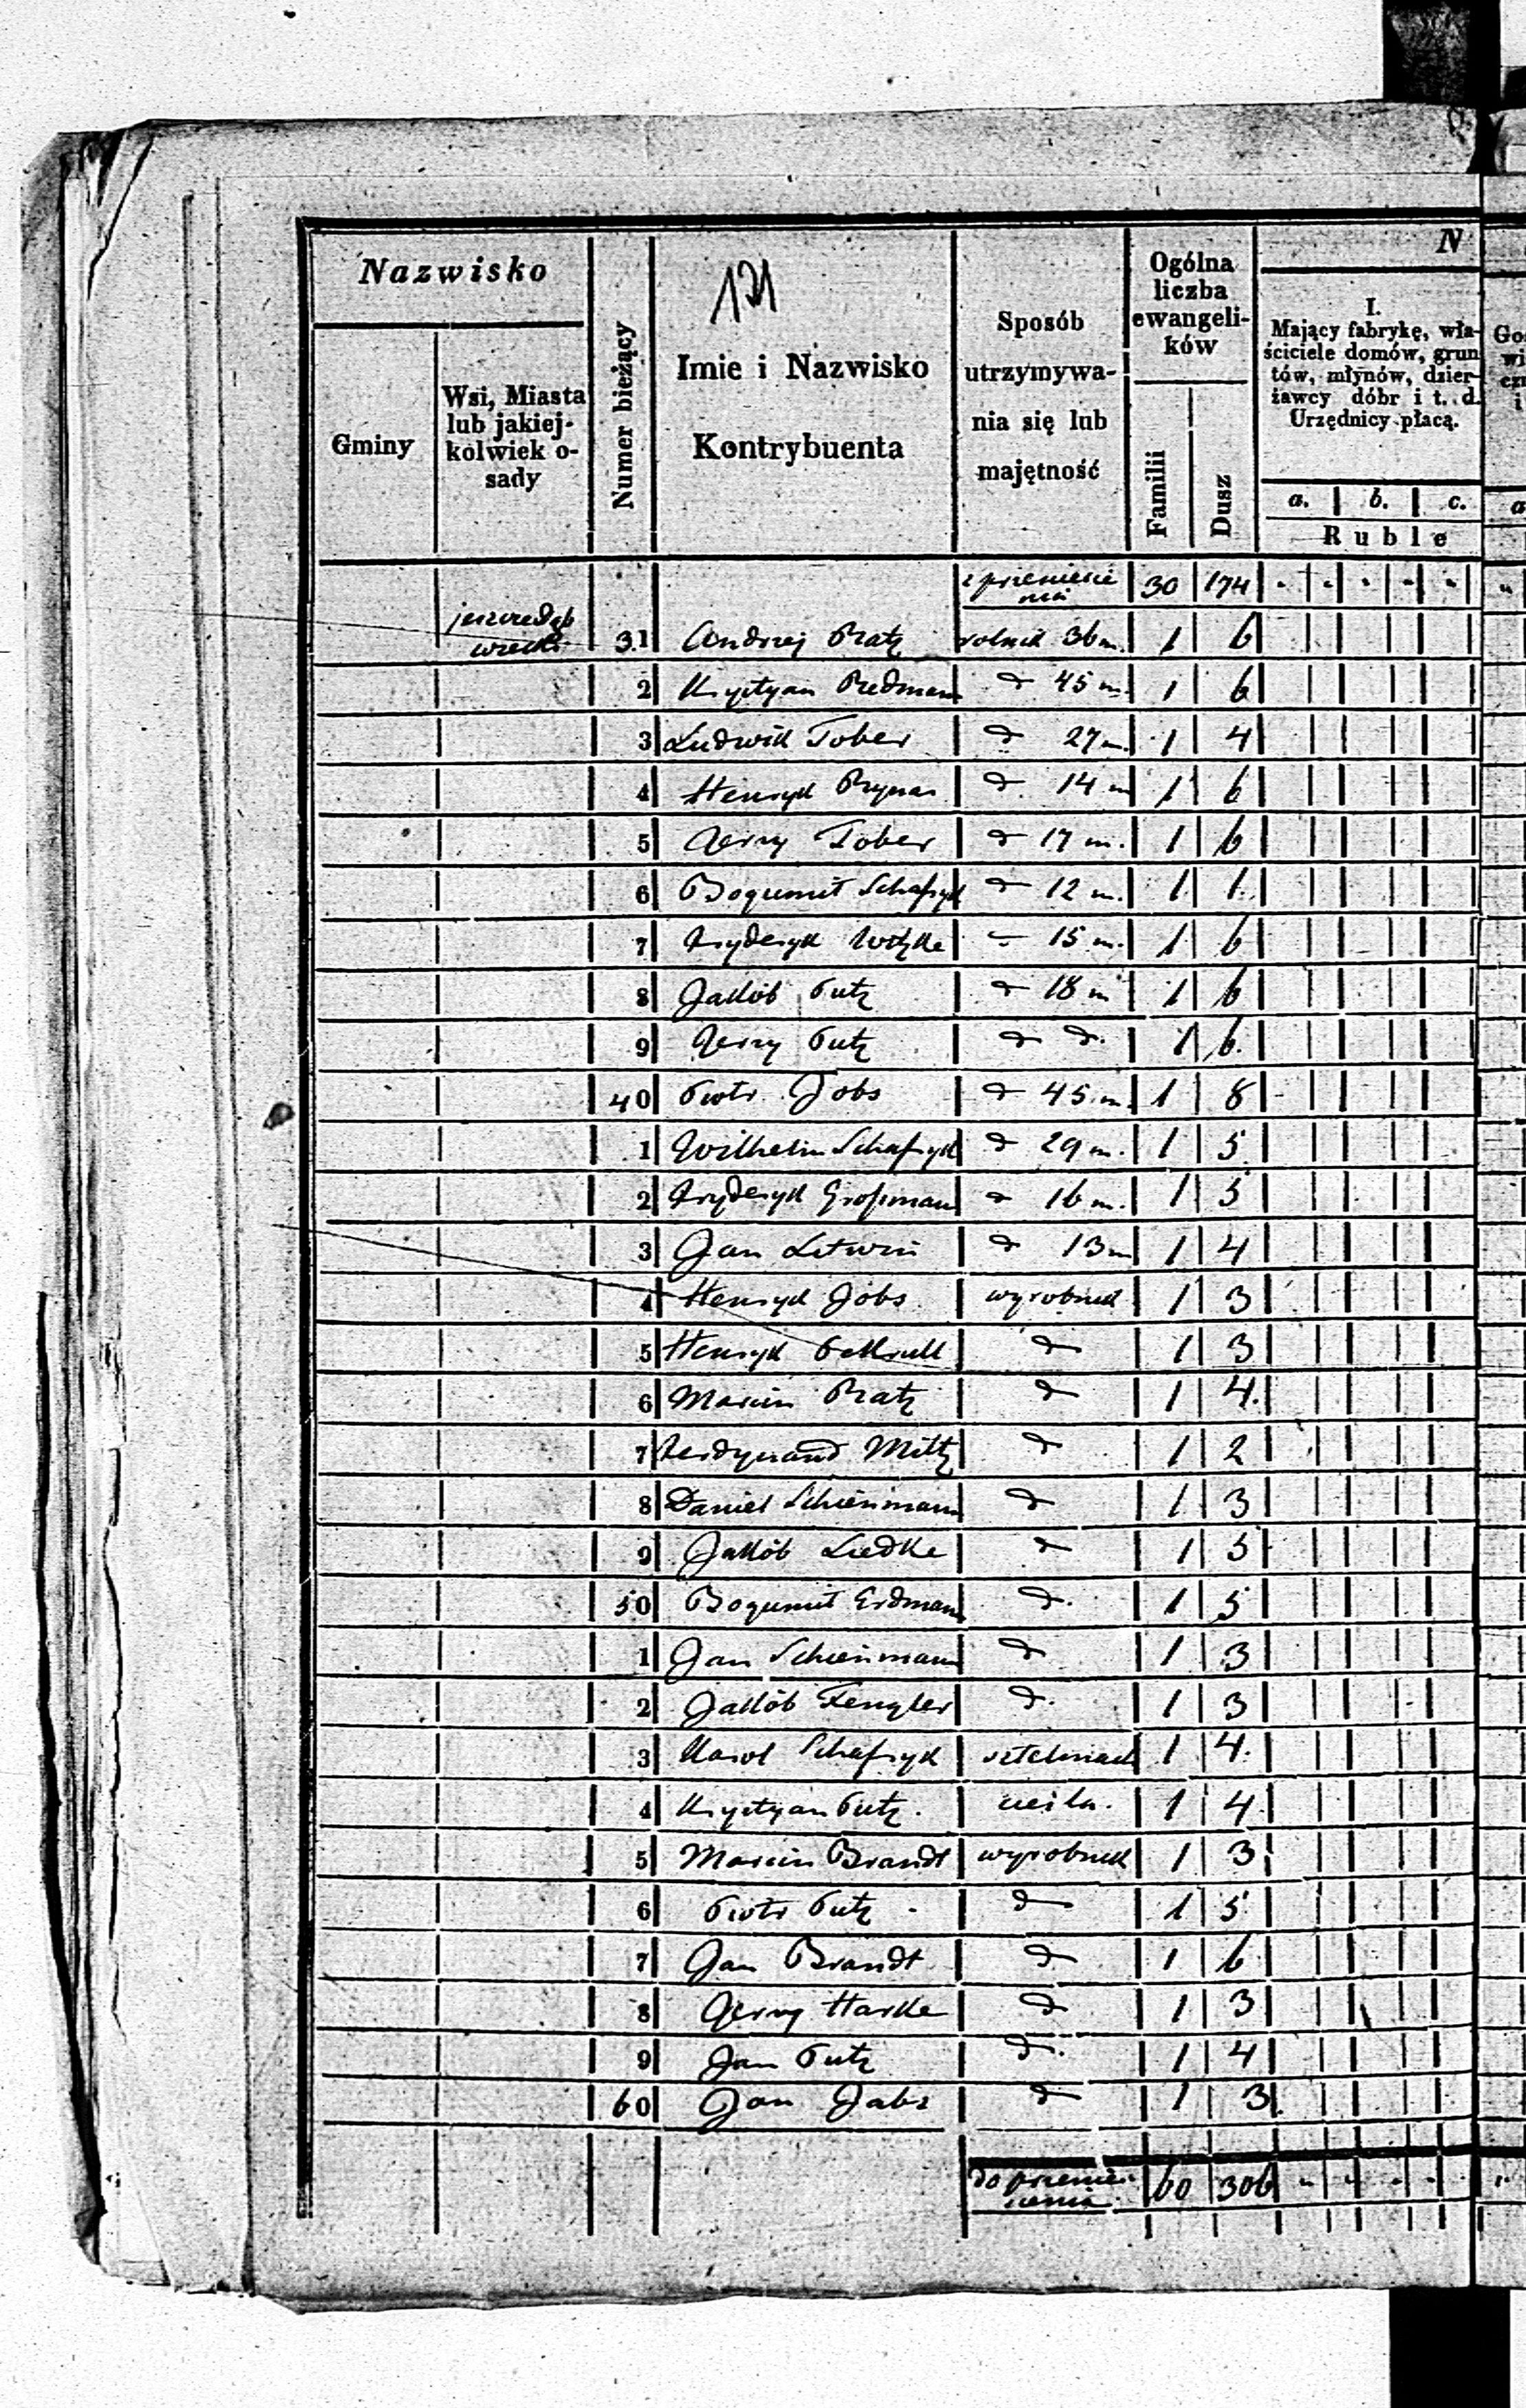 Nazwisko
Gminy
Wsi, Miasta
lub jakiej-
kolwiek o-
sady
Numer bieżący
121
Imie i Nazwisko
Kontrybuenta
Sposób
utrzymywa-
nia się lub
majętność
Ogólna
liczba
ewangeli-
ków
Familii
Dusz
N
I.
Mający fabrykę, wła-
ściciele domów, grun
tów, młynów, dzier-
żawcy dóbr i t. d.
Urzędnicy płacą.
a. b. c.
Ruble
z przeniesie
nia 30 174
31 Andrzej Ratz rolnik 36 m. 1 6
2 Krystyan Redmann d 45 m. 1 6
3 Ludwik Tober d 27 m. 1 4
4 Henryk d. 14 m 1 6
5 Jerzy Tober d 17 m. 1 6
6 Bogumił Schafryk d 12 m. 1 1
7 Fryderyk 15 m. 1 6
8 Jakób Putz d 18 m 1 6
9 Jerzy Putz d d. 1 6
40 Piotr Jobs d 45 m. 1 8
1 Wilhelm Schafryk d 29 m. 1 5
2 Fryderyk Großmann d 16 m. 1 5
3 Jan Litwin d 13 m 1 4
4 Henryk Jobs wyrobnik 1 3
5 Henryk d 1 3
6 Marcin Ratz d 1 4.
7 Ferdynand Miltz d 1 2
8 Daniel Schienmann d 1 3
9 Jakób Liedke d 1 5
50 Bogumił Erdmann d. 1 5
1 Jan Schienmann d 1 3
2 Jakób Fengler d. 1 3
3 Karol Schafryk sztelmach 1 4.
4 Krystyan Putz. cieśla. 1 4
5 Marcin Brandt wyrobnik 1 3
6 Piotr Putz d 1 5
7 Jan Brandt d 1 6
8 Jerzy Harke d 1 3
9 Jan Putz d. 1 4
60 Jan Jabs d 1 3
do przenie-
sienia 60 306